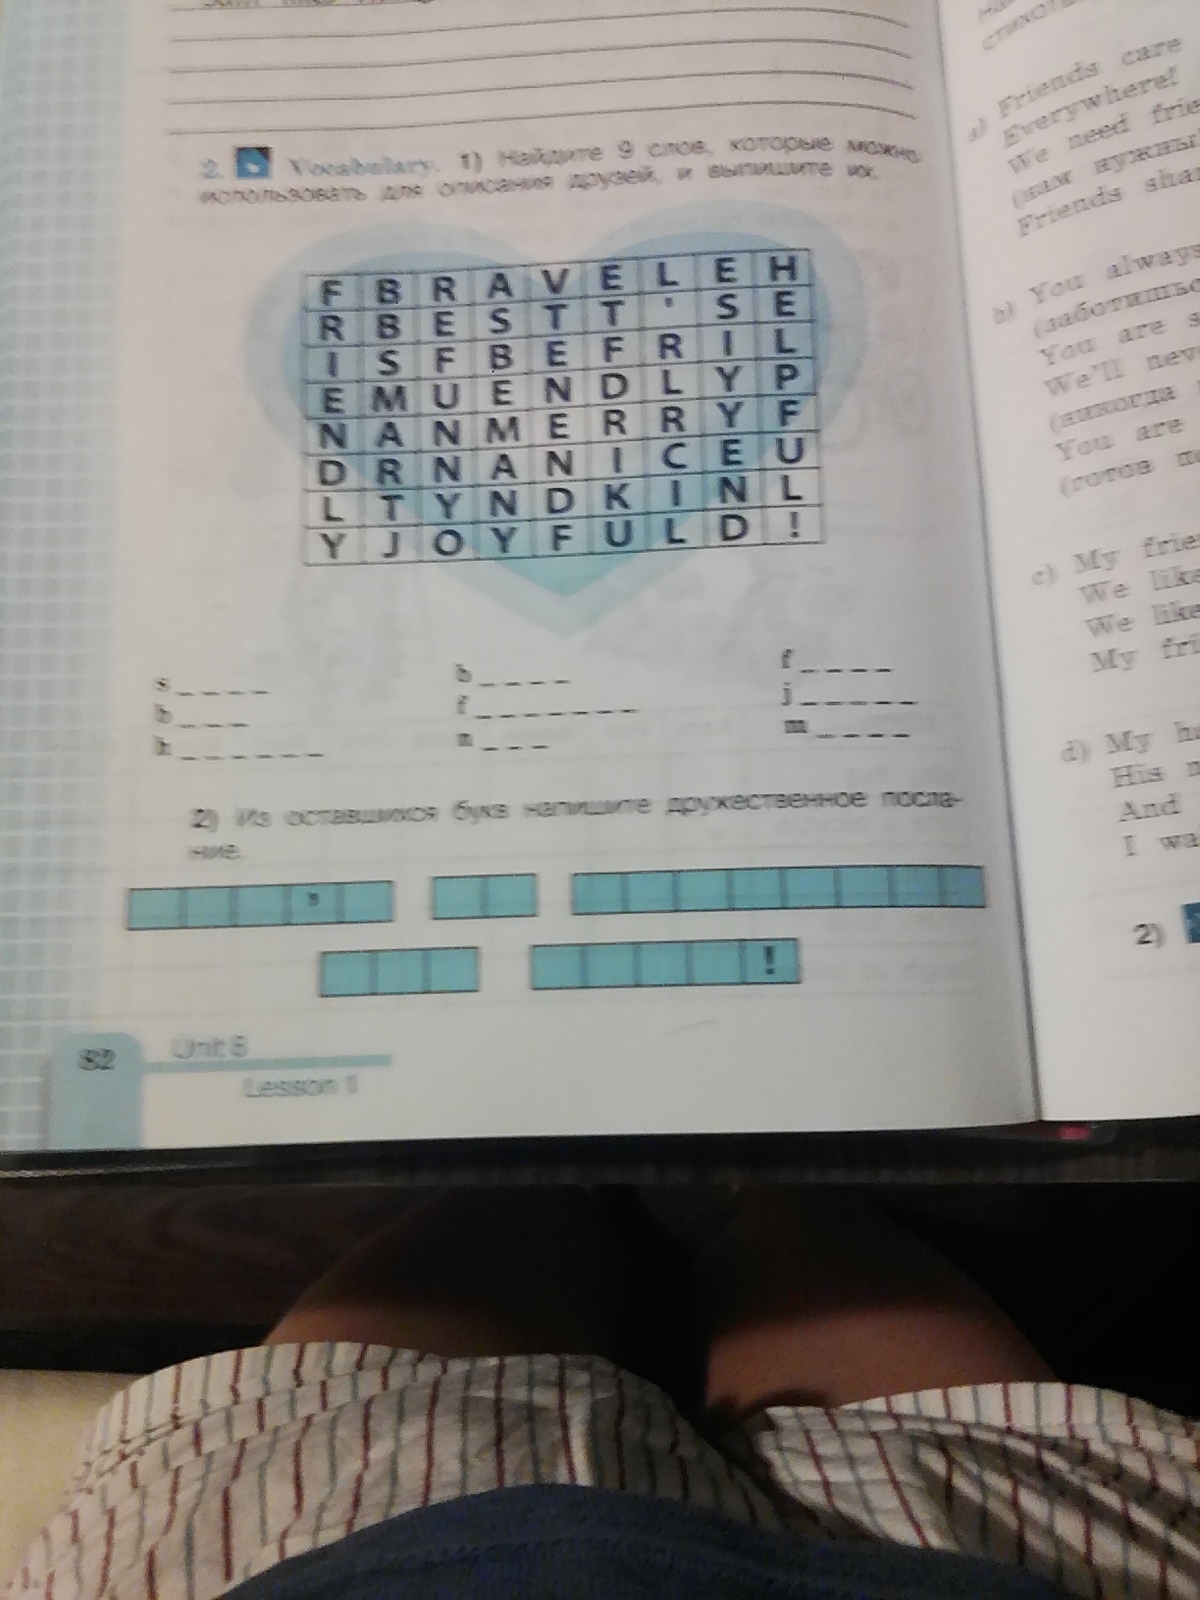 2. Vocabulary. 1) Найдите 9 слов, которые можно
использовать для описания друзей, и выпишите их.
F B R A V E L E H
R B E S T T ' S E
I S F B E F R I L
E M U E N D L Y P
N A N M E R R Y F
D R N A N I C E U
L T Y N D K I N L
Y J O Y F U L D !
s _ _ _ _
b _ _ _ _
f _ _ _ _
b _ _ _
f _ _ _ _ _ _ _
j _ _ _ _ _
h _ _ _ _ _ _
n _ _ _
m _ _ _ _
2) Из оставшихся букв напишите дружественное посла-
ние.
'
!
82
Unit 8
Lesson 1
a) Friends care
Everywhere!
We need
(нам нужны
Friends
b) You always
You are
We'll
(никогда
You are
(готов
c) My
We like
We like
My
d) My
His
And
I
2)